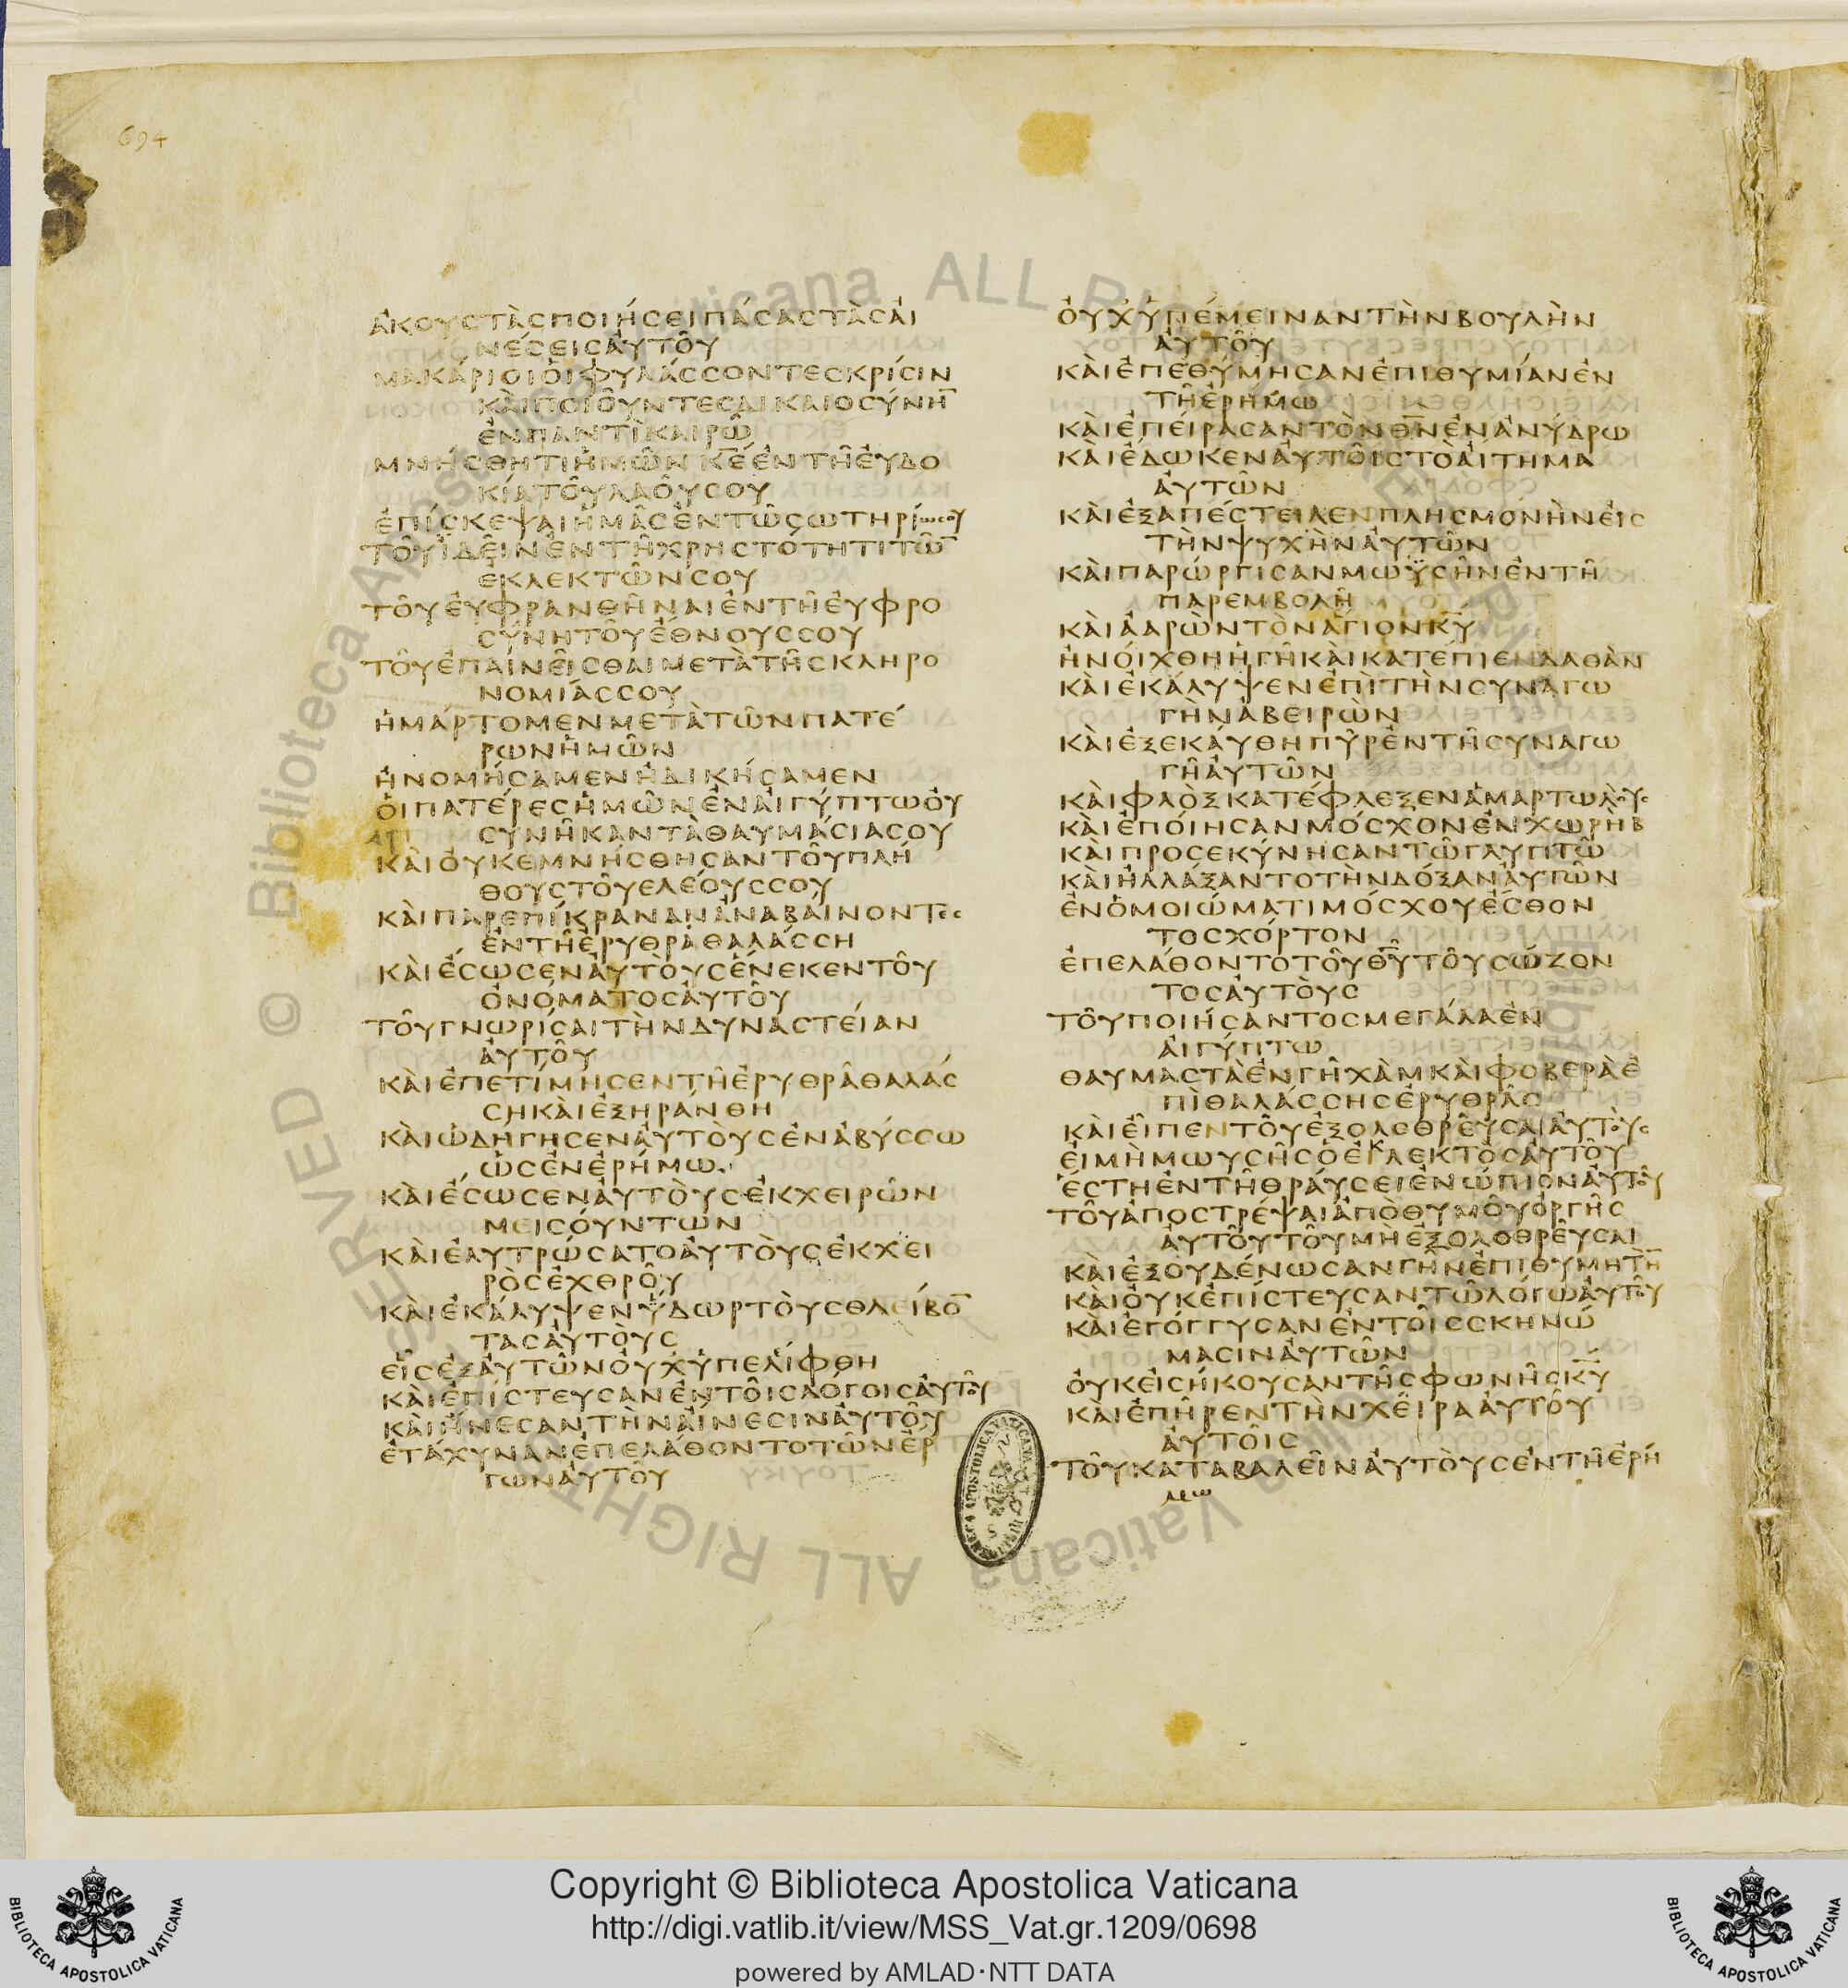 694
ἀκουστὰς ποιήσει πάσας τὰς ἀι
νέσεις ἀυτοῦ
μακάριοι ὁι φυλάσσοντες κρίσιν
κὰι ποιοῦντες δικαιοσύνη̅
ἐν παντὶ καιρῶ
μνήσθητι ἡμῶν κ̅ε̅ ἐν τῆ ἐυδο
κία τοῦ λαοῦ σου
ἐπίσκεψαι ἡμᾶς ἐν τῶ σωτηρίω σου
τοῦ ἰδεῖν ἐν τῆ χρηστότητι τῶ̅
ἐκλεκτῶν σου
τοῦ ἐυφρανθῆναι ἐν τῆ ἐυφρο
σύνη τοῦ ἔθνους σου
τοῦ ἐπαινεῖσθαι μετὰ τῆς κληρο
νομίας σου
ἡμάρτομεν μετὰ τῶν πατέ
ρων ἡμῶν
ἠνομήσαμεν ἠδικήσαμεν
ὁι πατέρες ἡμῶν ἐν ἀιγύπτω ὀυ
συνῆκαν τὰ θαυμάσιά σου
κὰι ὀυκ ἐμνήσθησαν τοῦ πλή
θους τοῦ ελέους σου
κὰι παρεπίκραναν ἀναβαίνοντες
ἐν τῆ ἐρυθρᾶ θαλάσση
κὰι ἔσωσεν ἀυτὸυς ἕνεκεν τοῦ
ὀνόματος ἀυτοῦ
τοῦ γνωρίσαι τὴν δυναστείαν
ἀυτοῦ
κὰι ἐπετίμησεν τῆ ἐρυθρᾶ θαλάσ
ση κὰι ἐξηράνθη
κὰι ὡδήγησεν ἀυτὸυς ἐν ἀβύσσω
ὡς ἐν ἐρήμω
κὰι ἔσωσεν ἀυτὸυς ἐκ χειρῶν
μεισούντων
κὰι ἐλυτρώσατο ἀυτὸυς ἐκ χει
ρὸς ἐχθροῦ
κὰι ἐκάλυψεν ὕδωρ τὸυς θλείβο̅
τας ἀυτὸυς
εἷς ἐξ ἀυτῶν ὀυχ ὑπελίφθη
κὰι ἐπίστευσαν ἐν τοῖς λόγοις ἀυτοῦ
κὰι ἤνεσαν τὴν ἄινεσιν ἀυτοῦ
ἐτάχυναν ἐπελάθοντο τῶν ἔρ
γων ἀυτοῦ
ὀυχ ὑπέμειναν τὴν βουλὴν
ἀυτοῦ
κὰι ἐπεθύμησαν ἐπιθυμίαν ἐν
τῆ ἐρήμω
κὰι ἐπείρασαν τὸν θ̅ν̅ ἐν ἀνύδρω
κὰι ἔδωκεν ἀυτοῖς τὸ ἄιτημα
ἀυτῶν
κὰι ἐξαπέστειλεν πλησμονὴν ἐις
τὴν ψυχὴν ἀυτῶν
κὰι παρώργισαν μωϋσῆν ἐν τῆ
παρεμβολῆ
κὰι ἀαρὼν τὸν ἅγιον κ̅υ̅
ἠνόιχθη ἡ γῆ κὰι κατέπιεν δαθὰν
κὰι ἐκάλυψεν ἐπὶ τὴν συναγω
γὴν ἀβειρὼν
κὰι ἐξεκάυθη πῦρ ἐν τῆ συναγω
γῆ ἀυτῶν
κὰι φλὸξ κατέφλεξεν ἁμαρτωλὸυς
κὰι ἐπόιησαν μόσχον ἐν χωρὴβ
κὰι προσεκύνησαν τῶ γλυπτῶ
κὰι ἠλλάξαντο τὴν δόξαν ἀυτῶν
ἐν ὁμοιώματι μόσχου ἔσθον
τος χόρτον
ἐπελάθοντο τοῦ θ̅υ̅ τοῦ σώζον
τος ἀυτὸυς
τοῦ ποιήσαντος μεγάλα ἐν
ἀιγύπτω
θαυμαστὰ ἐν γῆ χὰμ κὰι φοβερὰ ἐ
πὶ θαλάσσης ἐρυθρᾶς
κὰι εἶπεν τοῦ ἐξολοθρεῦσαι ἀυτὸυς
ἐι μὴ μωυσῆς ὁ ἐκλεκτὸς ἀυτοῦ
ἔστη ἐν τῆ θράυσει ἐνώπιον ἀυτοῦ
τοῦ ἀποστρέψαι ἀπὸ θυμοῦ ὀργῆς
ἀυτοῦ τοῦ μὴ ἐξολοθρεῦσαι
κὰι ἐξουδένωσαν γῆν ἐπιθυμητὴ̅
κὰι ὀυκ ἐπίστευσαν τῶ λόγω ἀυτοῦ
κὰι ἐγόγγυσαν ἐν τοῖς σκηνώ
μασιν ἀυτῶν
ὀυκ ἐισήκουσαν τῆς φωνῆς κ̅υ̅
κὰι ἐπῆρεν τὴν χεῖρα ἀυτοῦ
ἀυτοῖς
τοῦ καταβαλεῖν ἀυτὸυς ἐν τῆ ἐρή
μω
Copyright © Biblioteca Apostolica Vaticana
http://digi.vatlib.it/view/MSS_Vat.gr.1209/0698
powered by AMLAD·NTT DATA
BIBLIOTECA APOSTOLICA VATICANA
BIBLIOTECA APOSTOLICA VATICANA